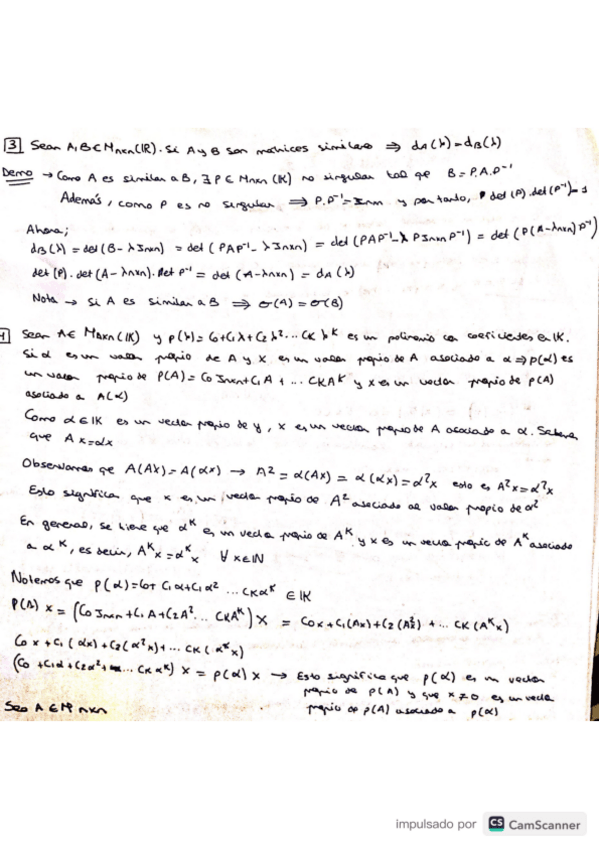 3 Sean A, B ∈ Mnxn(IR). Si A y B son matrices similares ⇒ dA(λ) = dB(λ)
Demo → Como A es similar a B, ∃ P ∈ Mnxn(K) no singular tal que B = P.A.P⁻¹
Además, como P es no singular ⇒ P.P⁻¹ = Inxn y por tanto, det(P).det(P⁻¹) = 1
Ahora;
dB(λ) = det(B - λInxn) = det(PAP⁻¹ - λInxn) = det(PAP⁻¹ - λPInxnP⁻¹) = det(P(A - λnxn)P⁻¹)
det(P).det(A - λnxn).Det P⁻¹ = det(A - λnxn) = dA(λ)
Nota → Si A es similar a B ⇒ σ(A) = σ(B)
4 Sean A ∈ Mnxn(IK) y p(λ) = C0 + C1λ + C2λ² ... CKλᴷ es un polinomio con coeficientes en IK.
Si α es un valor propio de A y X es un valor propio de A asociado a α ⇒ p(α) es
un valor propio de P(A) = C0 Inxn + C1A + ... CKAᴷ y x es un vector propio de P(A)
asociado a A(α)
Como α ∈ IK es un vector propio de y, x es un vector propio de A asociado a α. Se tiene
que Ax = αx
Observamos que A(AX) = A(αx) → A² = α(Ax) = α(αx) = α²x esto es A²x = α²x
Esto significa que x es un vector propio de A² asociado al valor propio de α²
En general, se tiene que αᴷ es un vector propio de Aᴷ y x es un vector propio de Aᴷ asociado
a αᴷ, es decir, Aᴷx = αᴷx ∀ x ∈ IN
Notemos que P(α) = C0 + C1α + C1α² ... CKαᴷ ∈ IK
P(A) x = (C0 Inxn + C1A + C2A² ... CKAᴷ) X = C0x + C1(Ax) + C2(A²x) + ... CK(Aᴷx)
C0x + C1(αx) + C2(α²x) + ... CK(αᴷx)
(C0 + C1α + C2α² + ... CKαᴷ) X = p(α) x → Esto significa que p(α) es un vector
propio de P(A) y que x ≠ 0 es un vector
propio de p(A) asociado a p(α)
Sea A ∈ M nxn
impulsado por CS CamScanner